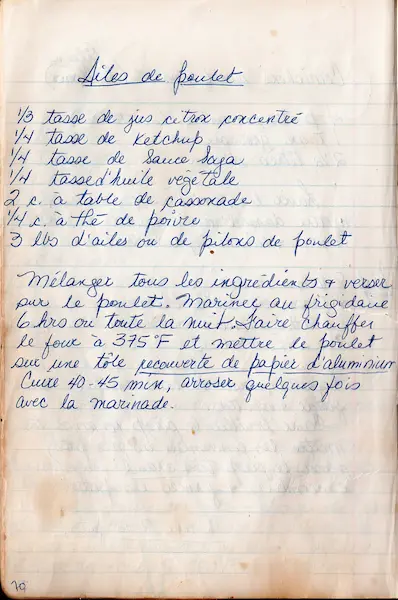 Ailes de poulet
1/3 tasse de jus citron concentré
1/4 tasse de ketchup
1/4 tasse de sauce Soya
1/4 tasse d'huile végétale
2 c. à table de cassonade
1/4 c. à thé de poivre
3 lbs d'ailes ou de pilons de poulet
Mélanger tous les ingrédients & verser
sur le poulet. Mariner au frigidaire
6 hrs ou toute la nuit. Faire chauffer
le four à 375°F et mettre le poulet
sur une tôle recouverte de papier d'aluminium
Cuire 40-45 min, arroser quelques fois
avec la marinade.